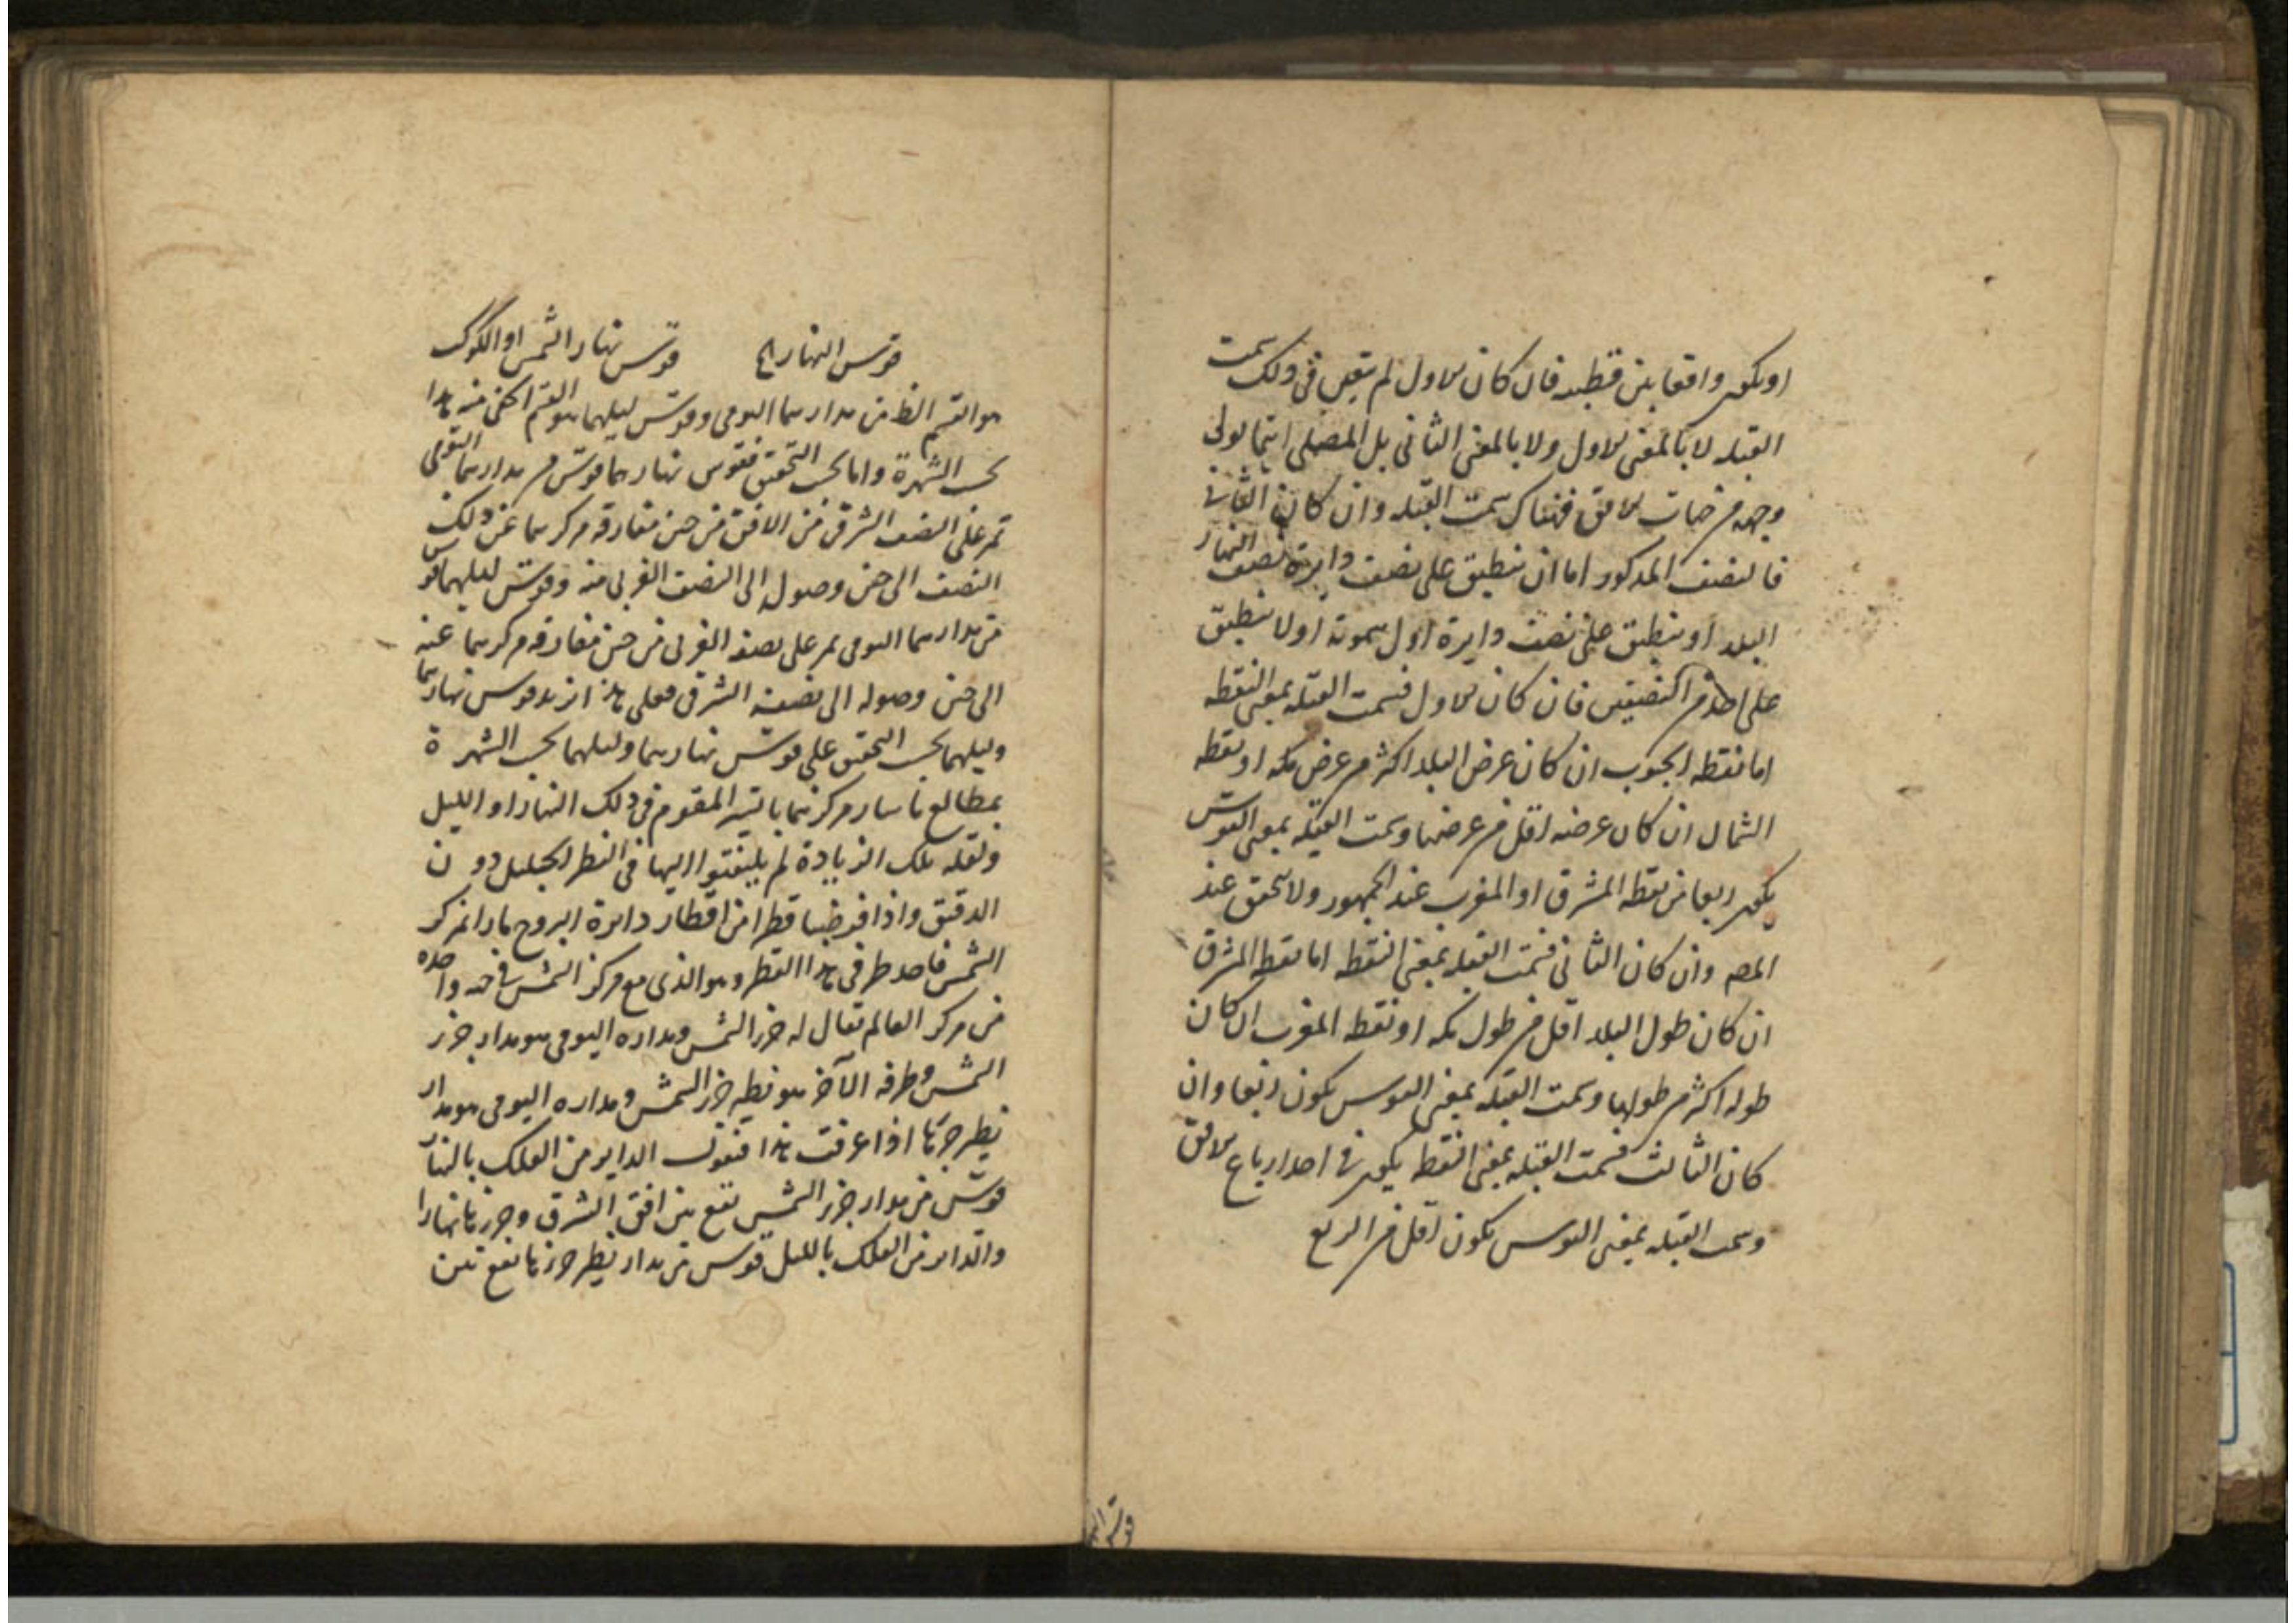 او يكون واقعا بين قطبيه فان كان الاول لم يتعين فى ذلك سمت
القبله لا بالمعنى الاول ولا بالمعنى الثانى بل المصلى اينما يولى
وجهه من جهات الافق فهناك سمت القبله وان كان الثانى
فالنصف المذكور اما ان ينطبق على نصف دايرة نصف النهار
البلد او ينطبق على نصف دايرة اول سموته او لا ينطبق
على احد من النصفين فان كان الاول فسمت القبله بمعنى النقطه
اما نقطه الجنوب ان كان عرض البلد اكثر من عرض مكه او نقطه
الشمال ان كان عرضه اقل من عرضها وسمت القبله بمعنى القوس
يكون ربعا من نقطه المشرق او المغرب عند الجمهور ولا يتحقق عند
المصه وان كان الثانى فسمت القبله بمعنى النقطه اما نقطه المشرق
ان كان طول البلد اقل من طول مكه او نقطه المغرب ان كان
طوله اكثر من طولها وسمت القبله بمعنى القوس يكون ربعا وان
كان الثالث فسمت القبله بمعنى النقطه يكون فى احد ارباع الافق
وسمت القبله بمعنى القوس يكون اقل من الربع
قوس النهار الخ قوس نهار الشمس او الكوكب
هو القسم الظ من مدارهما اليومى وقوس ليلهما هو القسم الخفى منه هذا
بحسب الشهرة واما بحسب التحقيق فقوس نهارهما قوس من مدارهما اليومى
تمر على النصف الشرقى من الافق من حين مفارقه مركزهما عن ذلك
النصف الى حين وصوله الى النصف الغربى منه وقوس ليلهما قوس
من مدارهما اليومى تمر على نصفه الغربى من حين مفارقه مركزهما عنه
الى حين وصوله الى نصفه الشرقى فعلى هذا يزيد قوس نهارهما
وليلهما بحسب التحقيق على قوس نهارهما وليلهما بحسب الشهرة
بمطالع ما سار مركزهما بالسير المقوم فى ذلك النهار او الليل
ولقله تلك الزيادة لم يلتفتوا اليها فى النظر الجليل دون
الدقيق واذا فرضنا قطرا من اقطار دايرة البروج مارا بمركز
الشمس فاحد طرفى هذا القطر وهو الذى مع مركز الشمس فى جهه واحده
من مركز العالم يقال له جزر الشمس ومداره اليومى هو مدار جزر
الشمس وطرفه الآخر هو نظير جزر الشمس ومداره اليومى هو مدار
نظير جزئها اذا عرفت هذا فنقول الداير من الفلك بالنهار
قوس من مدار جزر الشمس تقع بين افق الشرق وجزئها نهارا
والداير من الفلك بالليل قوس من مدار نظير جزئها تقع بين